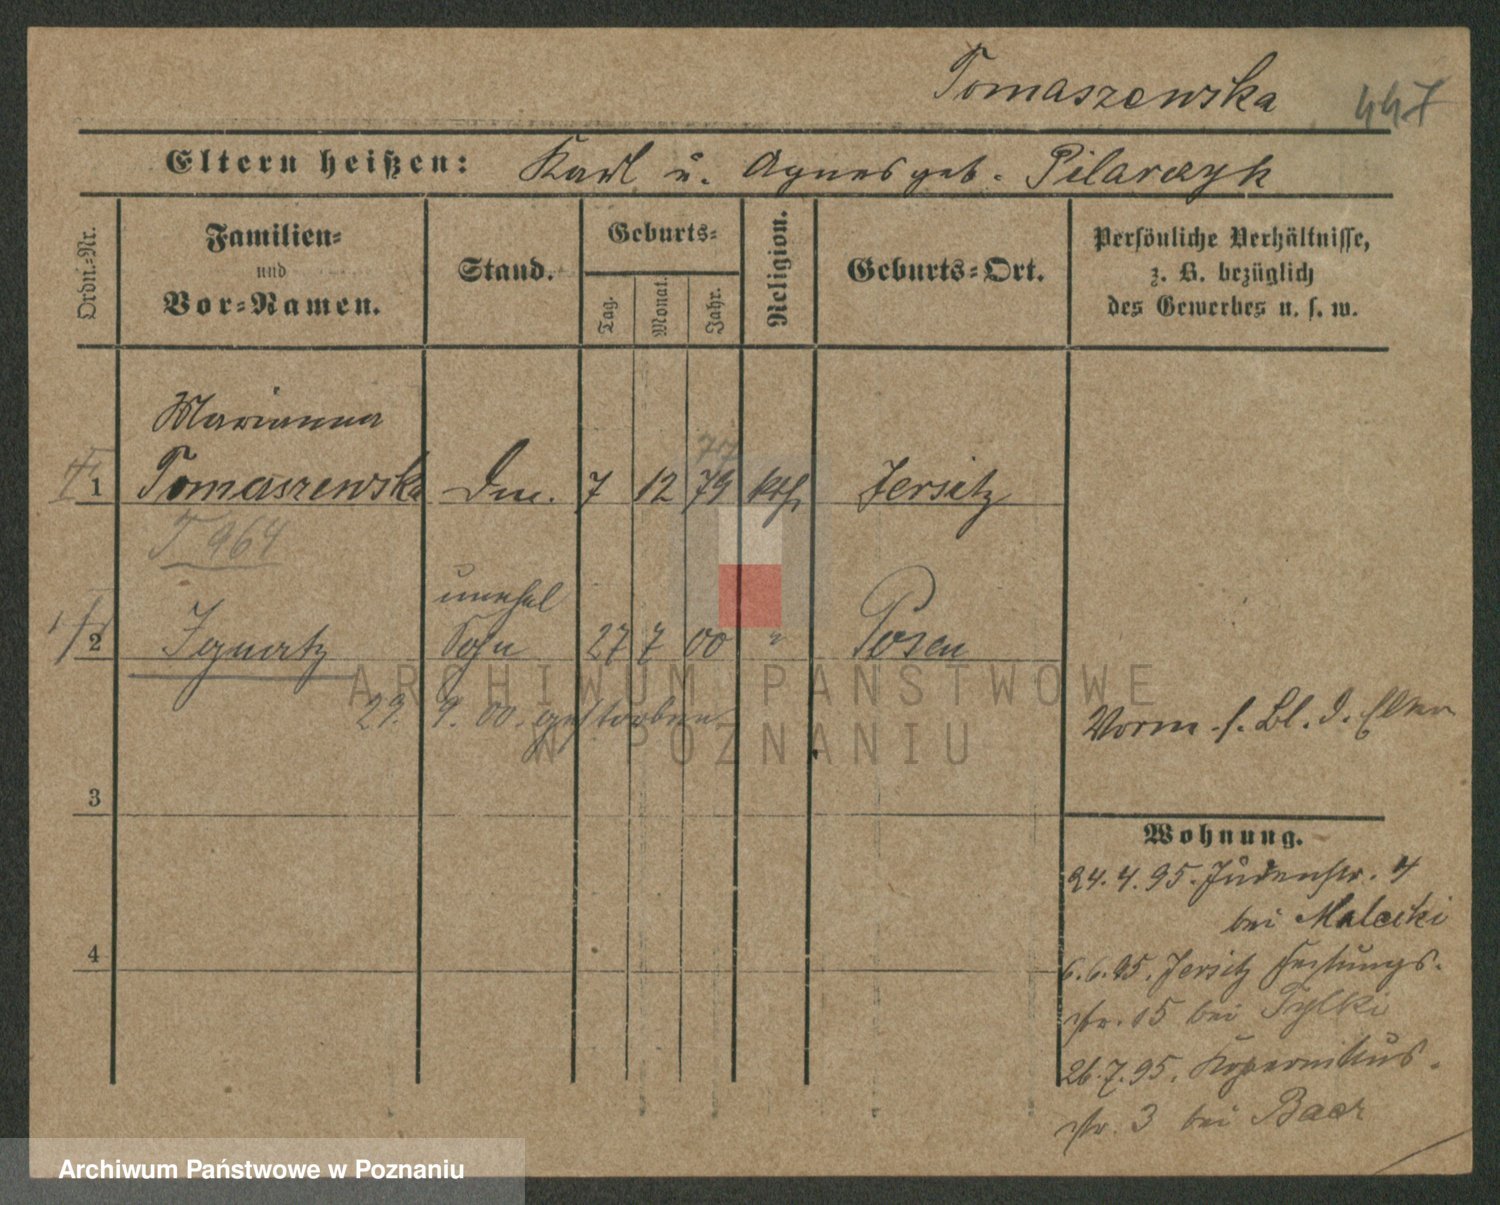 Tomaszewska
447
Eltern heißen: Karl u. Agnes geb. Pilarczyk
Ordn.-Nr.
Familien-
und
Vor-Namen.
Stand.
Geburts-
Tag.
Monat.
Jahr.
Religion.
Geburts-Ort.
Persönliche Verhältnisse,
z. B. bezüglich
des Gewerbes u. s. w.
Marianna
77
1 Tomaszewska 7 12 79 kth Jersitz
T 964
unehel
2 Ignatz Sohn 27 7 00 " Posen
29. 9. 00. gestorben
Vorm. s. Bl. d. Eltern
3
Wohnung.
24. 4. 95. Judenstr. 4
bei Malecki
4
6. 6. 95. Jersitz Festungs-
str. 15 bei Tylki
26. 7. 95. Kopernikus-
str. 3 bei Baer
ARCHIWUM PAŃSTWOWE
W POZNANIU
Archiwum Państwowe w Poznaniu